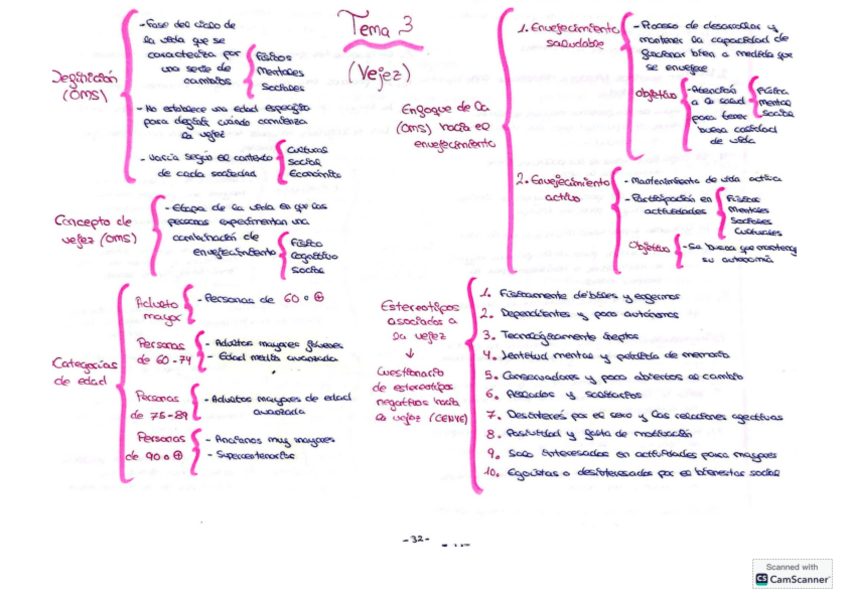 Tema 3
(Vejez)
Definición
(OMS)
- Fase del ciclo de
la vida que se
caracteriza por
una serie de
cambios
Físicos
Mentales
Sociales
- No establece una edad específica
para definir cuándo comienza
la vejez
- Varía según el contexto
de cada sociedad
Cultural
Social
Económico
Concepto de
vejez (OMS)
- Etapa de la vida en que las
personas experimentan una
combinación de
envejecimiento
Físico
Cognitivo
Social
Categorías
de edad
Adulto
mayor
- Personas de 60 o +
Personas
de 60-74
- Adultos mayores jóvenes
- Edad media avanzada
Personas
de 75-89
- Adultos mayores de edad
avanzada
Personas
de 90 o +
- Ancianos muy mayores
- Supercentenarios
Enfoque de la
(OMS) hacia el
envejecimiento
1. Envejecimiento
saludable
- Proceso de desarrollar y
mantener la capacidad de
funcionar bien a medida que
se envejece
Objetivo
- Atención
a la salud
Física
mental
Social
para tener
buena calidad
de vida
2. Envejecimiento
activo
- Mantenimiento de vida activa
- Participación en
actividades
Físicas
Mentales
Sociales
Culturales
Objetivo
- Se busca que mantenga
su autonomía
Estereotipos
asociados a
la vejez
↓
Cuestionario
de estereotipos
negativos hacia
la vejez (CENVE)
1. Físicamente débiles y enfermos
2. Dependientes y poco autónomos
3. Tecnológicamente ineptos
4. Lentitud mental y pérdida de memoria
5. Conservadores y poco abiertos al cambio
6. Aislados y solitarios
7. Desinterés por el sexo y las relaciones afectivas
8. Pasividad y falta de motivación
9. Solo interesados en actividades para mayores
10. Egoístas o desinteresados por el bienestar social
-32-
Scanned with
CS CamScanner